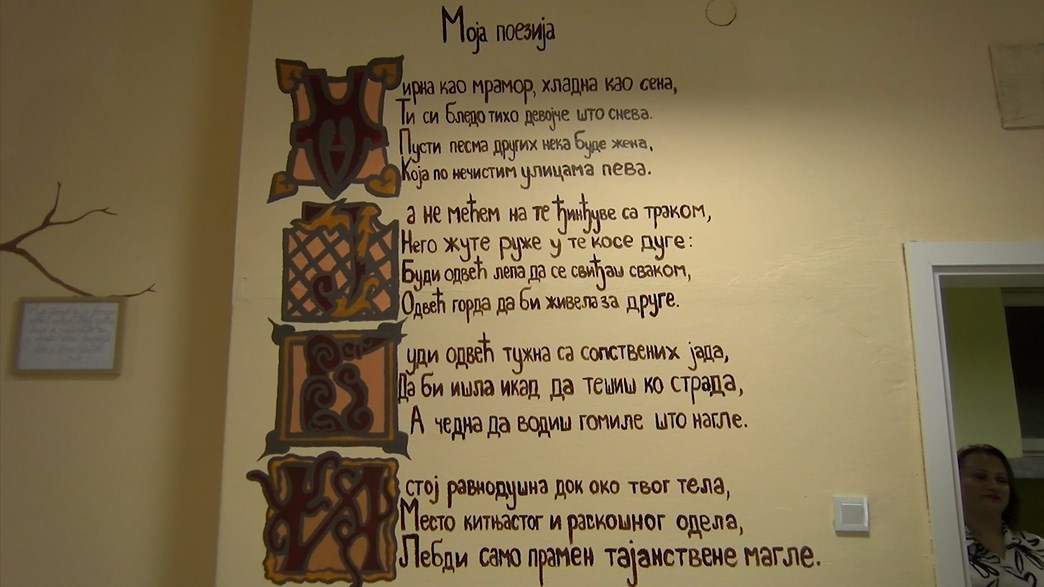 Моја поезија
Мирна као мрамор, хладна као сена,
Ти си бледо тихо девојче што снева.
Пусти песма других нека буде жена,
Која по нечистим улицама пева.
Ја не мећем на те ђинђуве са траком,
Него жуте руже у те косе дуге:
Буди одвећ лепа да се свиђаш сваком,
Одвећ горда да би живела за друге.
Буди одвећ тужна са сопствених јада,
Да би ишла икад да тешиш ко страда,
А чедна да водиш гомиле што нагле.
И стој равнодушна док око твог тела,
Место китњастог и раскошног одела,
Лебди само прамен тајанствене магле.